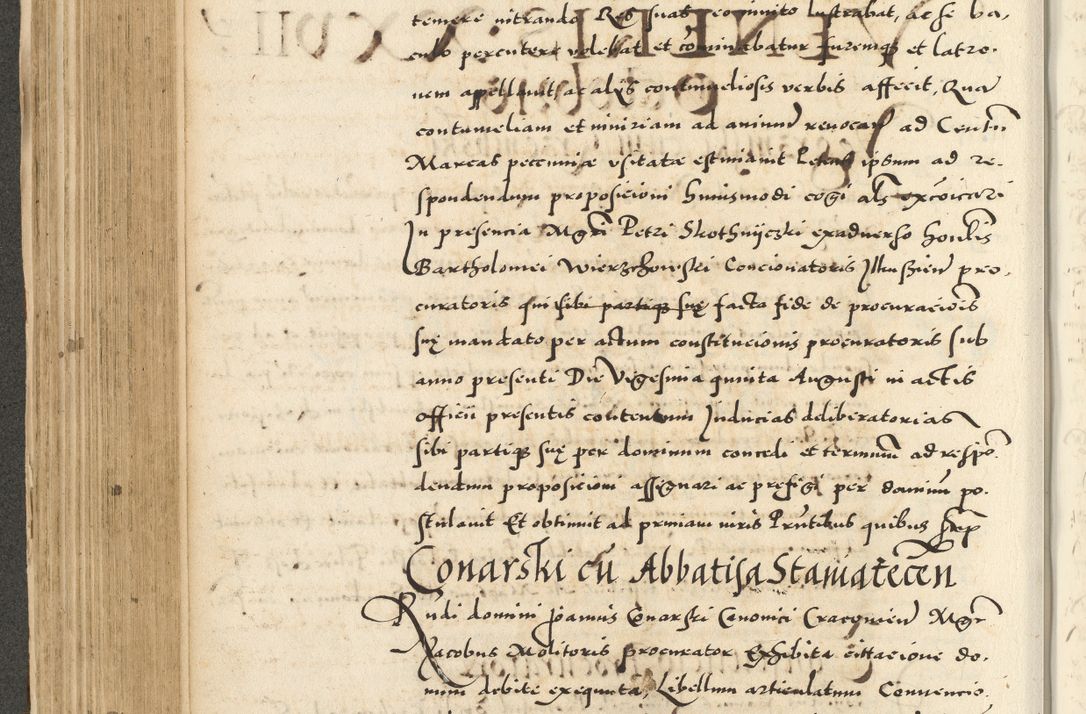 temere intrando Res suas eo invito lustrabat, ac se ba-
culo percutere volebat et cominabatur furemq3 et latro-
nem appellavit ac aliis contumeliosis verbis affecit, Qua
contumeliam et iniuriam ad animu revocat ad Centu
Marcas peccuniæ usitatæ estimavit Petens ipsum ad re-
spondendum proposicioni huiusmodi cogi als excoicari
In presencia Mgri Petri Skothnijczki exadverso honlis
Bartholomei Wierzchowski Concionatoris Ilkussien pro-
curatoris qui sibi partiq3 suę facta fide de procuraciois
suę mandato per actum constitucionis procuratoris sub
anno presenti Die Vigesima quinta Augusti in actis
officii presentis contentum Inducias deliberatorias
sibi partiq3 suę per dominum concedi et terminum ad respo-
dendum proposicioni assignari ac prefigi per dominu po-
stulavit Et obtinuit ad primam iuris Prutibus quibus sup
Conarski cu Abbatissa Staniatecen
Rudi domini Joannis Conarski Canonici Cracovien Mgr
Jacobus Molitoris procurator Exhibita cittacione do-
mini debite exequuta, Libellum articulatum Convencio-